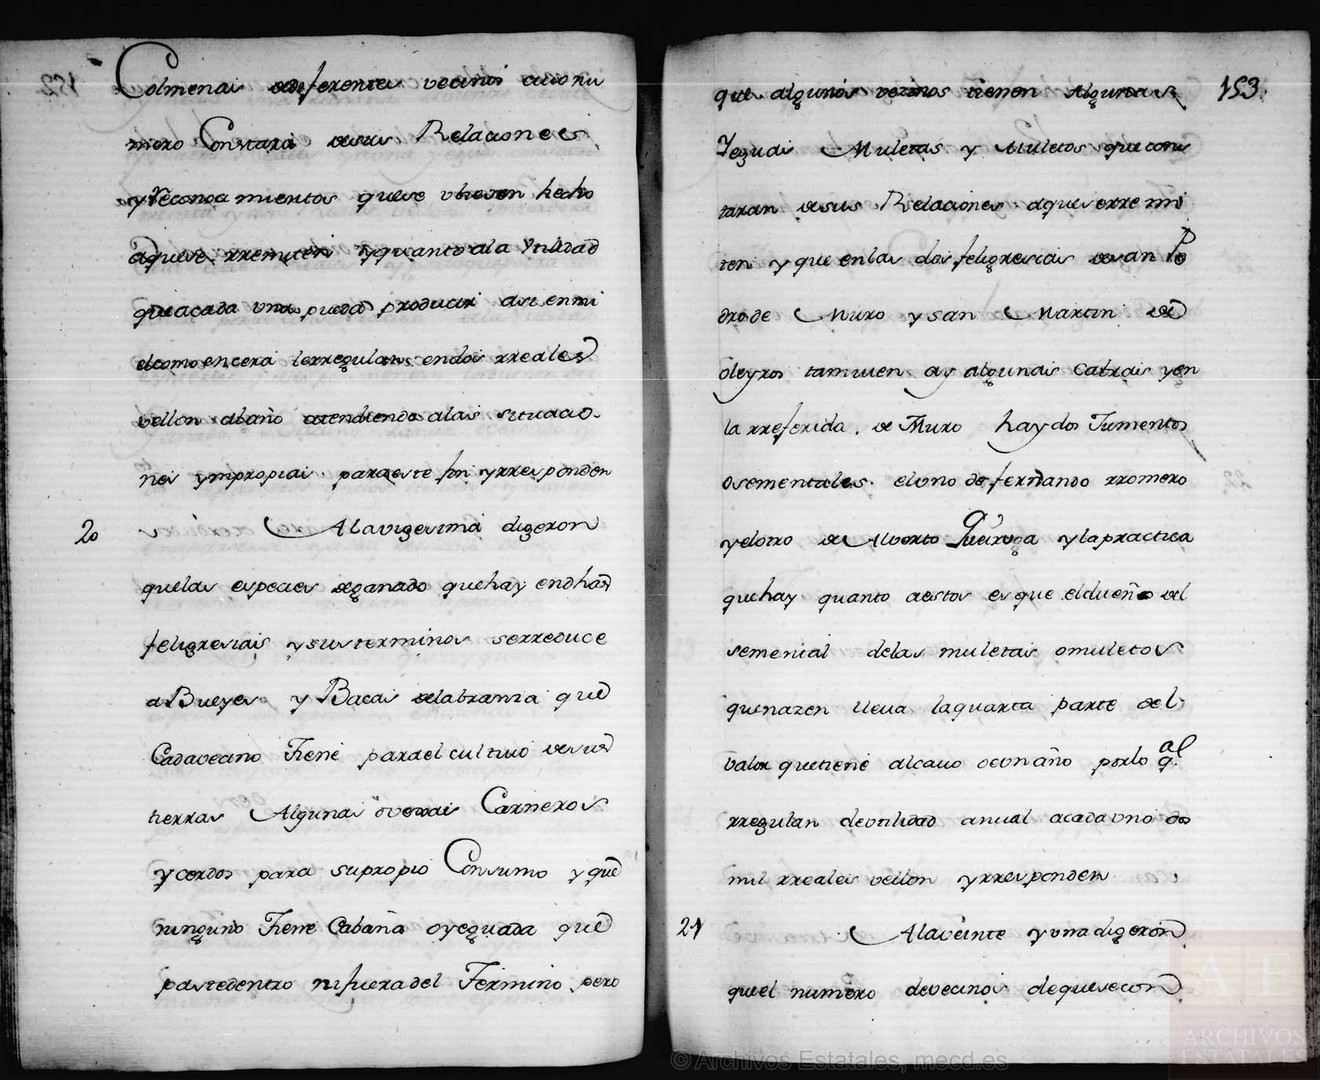 Colmenas dediferentes vecinos cuio nu
mero Constara desus Relaciones
yReconoca mientos quese vbiesen hecho
aquese rremiten yquantoala vtilidad
queacada una pueda producir asi enmi
elcomoencera lerregulan endos rreales
vellon alaño atendiendo alas situacio-
nes ympropias paraeste fin yrresponden
20 Alavigesima digeron
quelas especies deganado quehay endhas
feligresias ysusterminos serreduce
aBueyes y Bacas delabrania que
Cadavecino Tiene parael cultivo desus
tierras Algunas ovexas Carneros
ycerdos para supropio Consumo y que
ninguno Tiene Cabaña oyeguada que
pastedentro nifueradel Termino pero
que algunos vezinos tienen Algunas 153.
Yeguas Muletas y Muletos que cons
taran desus Relaciones aqueserremi
ten y que enlas dos feligresias desan Pe
drode Muro ysan Martin de
oleyros tamvien ay algunas Cabras yen
la rreferida de Muro hay dos Jumentos
osementales eluno de fernando rromero
yelotro de Alverto Queiroga ylapractica
quehay quanto aestos es que eldueño del
semental delas muletas omuletos
quenazen lleva laquarta parte del
valor quetiene alcavo deunaño porlo ql
rregulan deutilidad anual acadauno dos
mil rreales vellon yrresponden
21 Alaveinte yuna digeron
quel numero devecinos dequesecom
© Archivos Estatales, mecd.es
AE
ARCHIVOS
ESTATALES